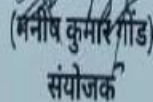 (मनीष कुमार गोंड)
संयोजक